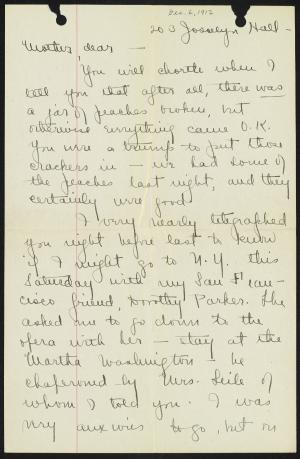 Dec. 6, 1912
203 Josselyn Hall -
Mother dear -
You will chortle when I
tell you that after all, there was
a jar of peaches broken, but
otherwise everything came O.K.
You were a trump to put those
crackers in - we had some of
the peaches last night, and they
certainly were good.
I very nearly telegraphed
you night before last to know
if I might go to N.Y. this
Saturday with my San Fran-
cisco friend, Dorothy Parker. She
asked me to go down to the
opera with her - stay at the
Martha Washington - be
chaperoned by Mrs. of
whom I told you. I was
very anxious to go, but on